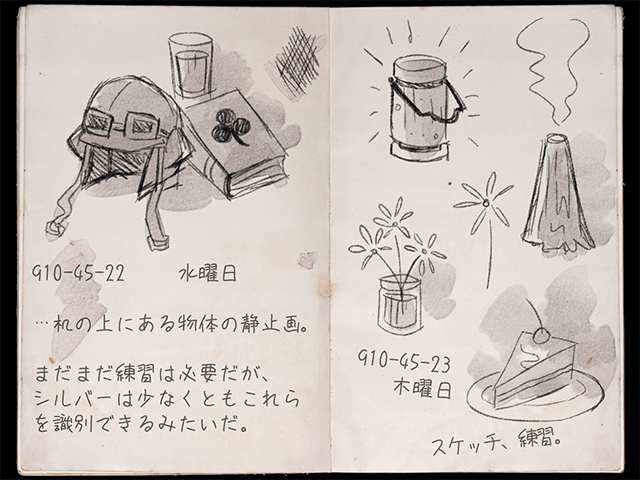 910-45-22 水曜日
…机の上にある物体の静止画。
まだまだ練習は必要だが、
シルバーは少なくともこれら
を識別できるみたいだ。
910-45-23
木曜日
スケッチ、練習。